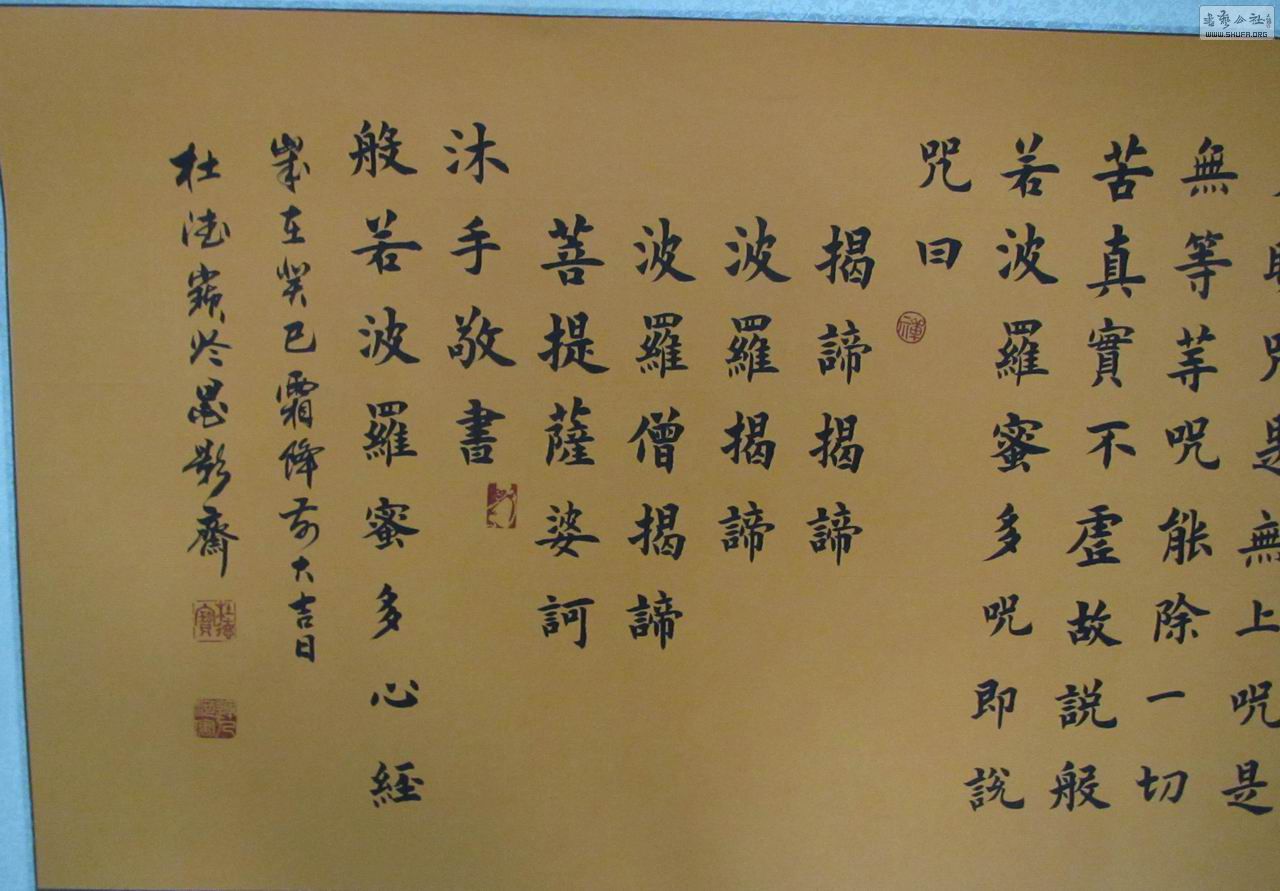 咒是無上咒是
無等等咒能除一切
苦真實不虛故說般
若波羅蜜多咒即說
咒曰
揭諦揭諦
波羅揭諦
波羅僧揭諦
菩提薩婆訶
沐手敬書
般若波羅蜜多心經
歲在癸巳霜降前大吉日
杜德寶於墨影齋
WWW.SHUFA.ORG